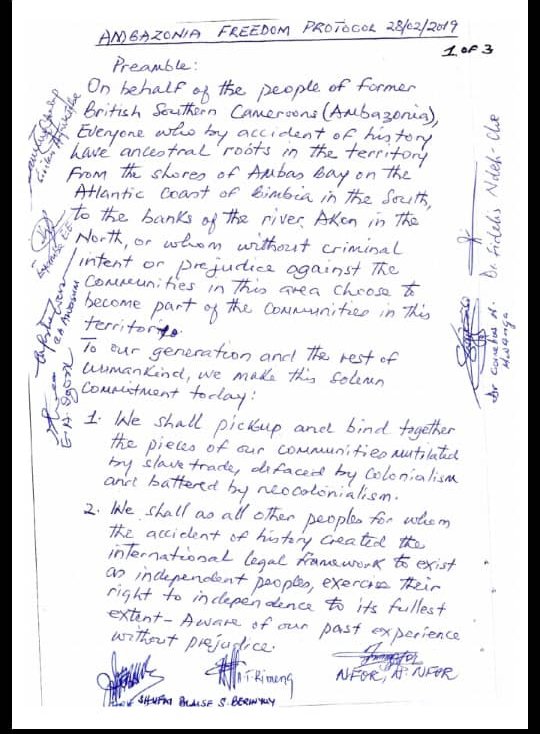 AMBAZONIA FREEDOM PROTOCOL 28/02/2019
1 OF 3
Preamble:
On behalf of the people of former
British Southern Cameroons (Ambazonia),
Everyone who by accident of history
have ancestral roots in the territory
From the shores of Ambas Bay on the
Atlantic Coast of Bimbia in the South,
to the banks of the river Aken in the
North, or whom without criminal
intent or prejudice against the
Communities in this area choose to
become part of the Communities in this
territory.
To our generation and the rest of
humankind, we make this Solemn
Commitment today:
1. We shall pickup and bind together
the pieces of our communities mutilated
by slave trade, defaced by Colonialism
and battered by neocolonialism.
2. We shall as all other peoples for whom
the accident of history created the
international legal framework to exist
as independent peoples, exercise their
right to independence to its fullest
extent - Aware of our past experience
without prejudice.
SHUFAI BLAISE S. BERINYUY
A. T. Kimeng
NFOR, N. NFOR
Dr Fidelis Ndeh-Che
Dr Cornelius N.